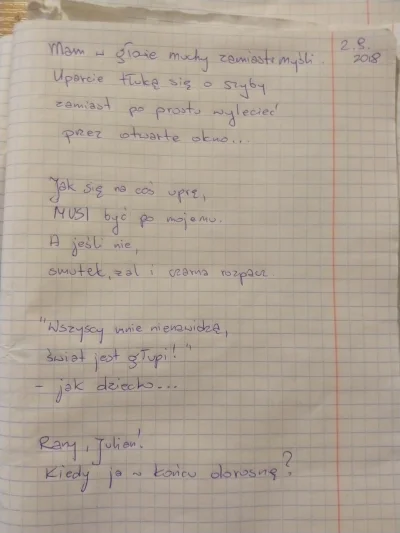 2.9.
2018
Mam w głowie muchy zamiast myśli.
Uparcie tłuką się o szyby
zamiast po prostu wylecieć
przez otwarte okno...
Jak się na coś uprę,
MUSI być po mojemu.
A jeśli nie,
smutek, żal i czarna rozpacz.
"Wszyscy mnie nienawidzą,
świat jest głupi!"
- jak dziecko...
Rany, Julian!
Kiedy ja w końcu dorosnę?